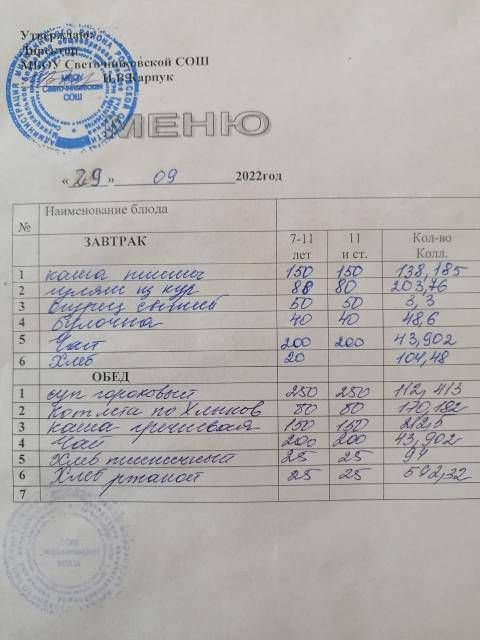 Утверждаю:
Директор
МБОУ Светочниковской СОШ
Н.В.Карпук
МЕНЮ
«29» 09 2022год
№ Наименование блюда
ЗАВТРАК 7-11 лет 11 и ст. Кол-во Колл.
1 каша пшенич 150 150 138,185
2 гуляш из кур 80 80 203,76
3 огурец свежий 50 50 3,3
4 Булочка 40 40 48,6
5 Чай 200 200 43,902
6 Хлеб 20 104,48
ОБЕД
1 суп гороховый 250 250 112,413
2 Котлета по Хлынов 80 80 170,182
3 каша гречневая 150 150 212,5
4 Чай 200 200 43,902
5 Хлеб пшеничный 25 25 94
6 Хлеб ржаной 25 25 592,32
7